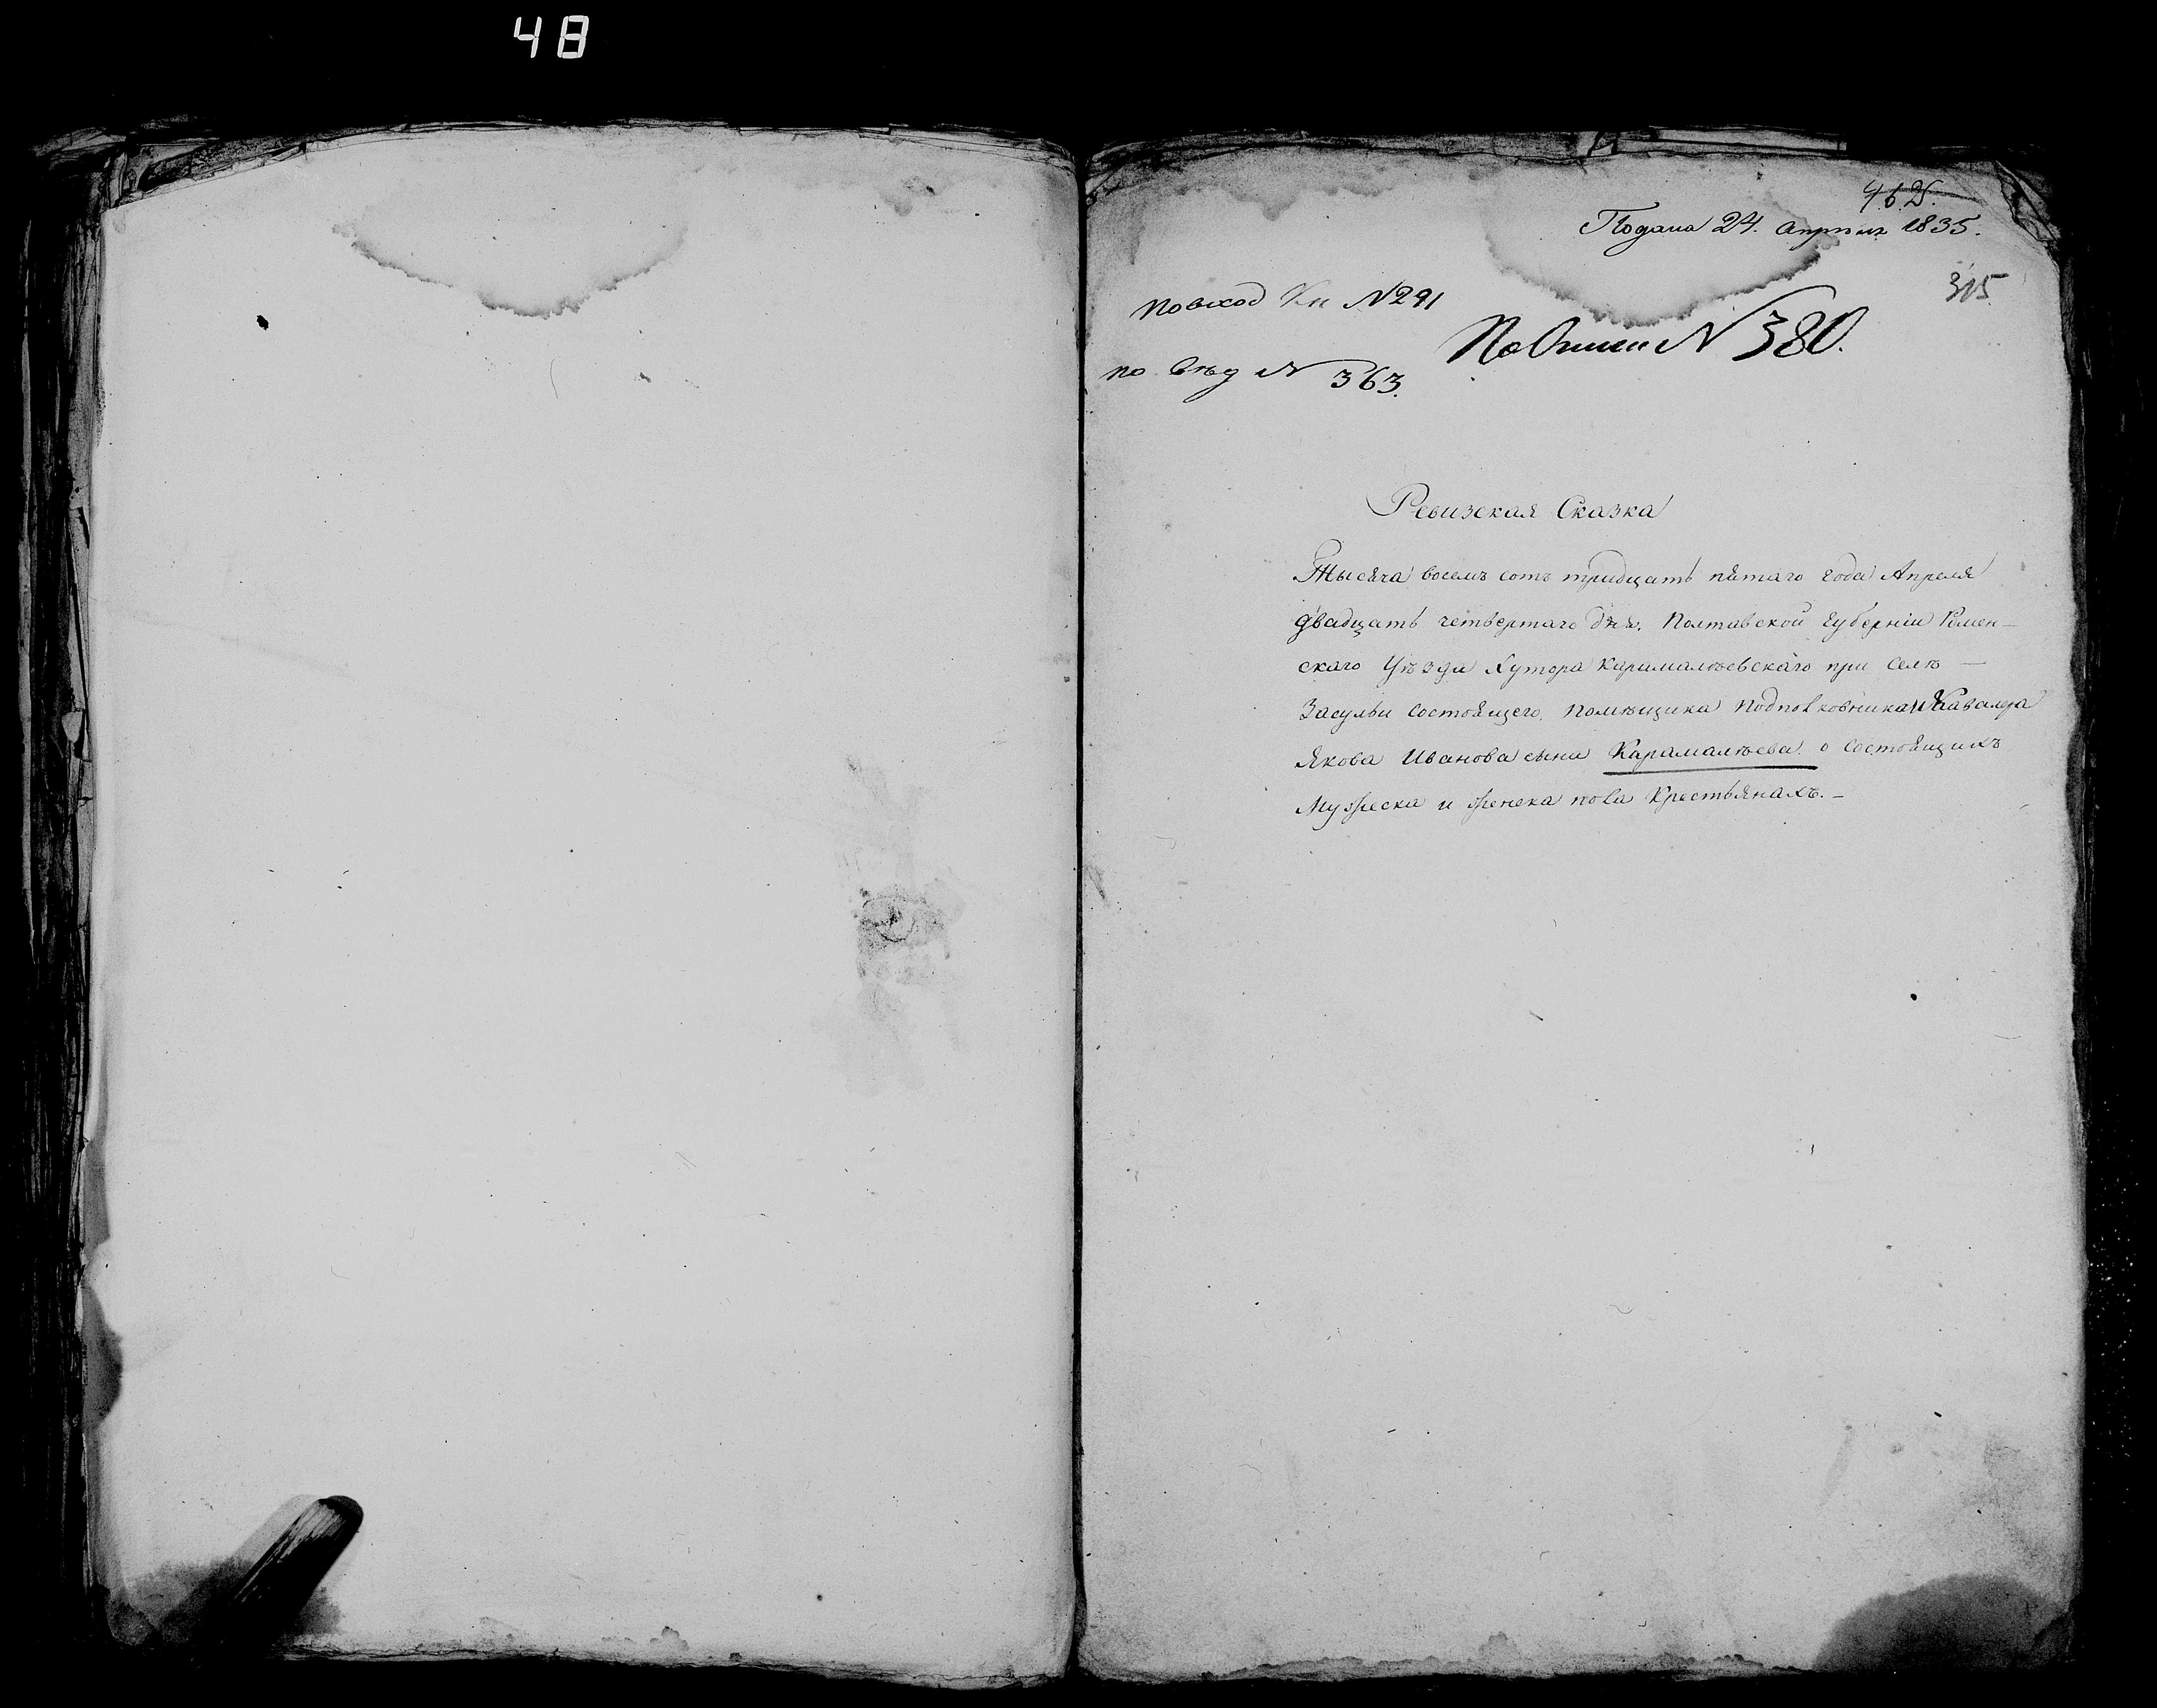 48
462.
Подана 24. апреля 1835.
315
по вход Кн №291
По Описи №380.
по вѣд № 363.
Ревизская Сказка
Тысяча восемъ сотъ тридцать пятаго года Апреля
двадцать четвертаго дня, Полтавской губерніи Ромен–
скаго Уѣзда Хутора Карамалѣевскаго при селѣ —
Засульи состоящего, помѣщика Подполковника и Кавалера
Якова Иванова сына Карамалѣева о состоящихъ
Мужеска и женска пола Крестьянахъ.–